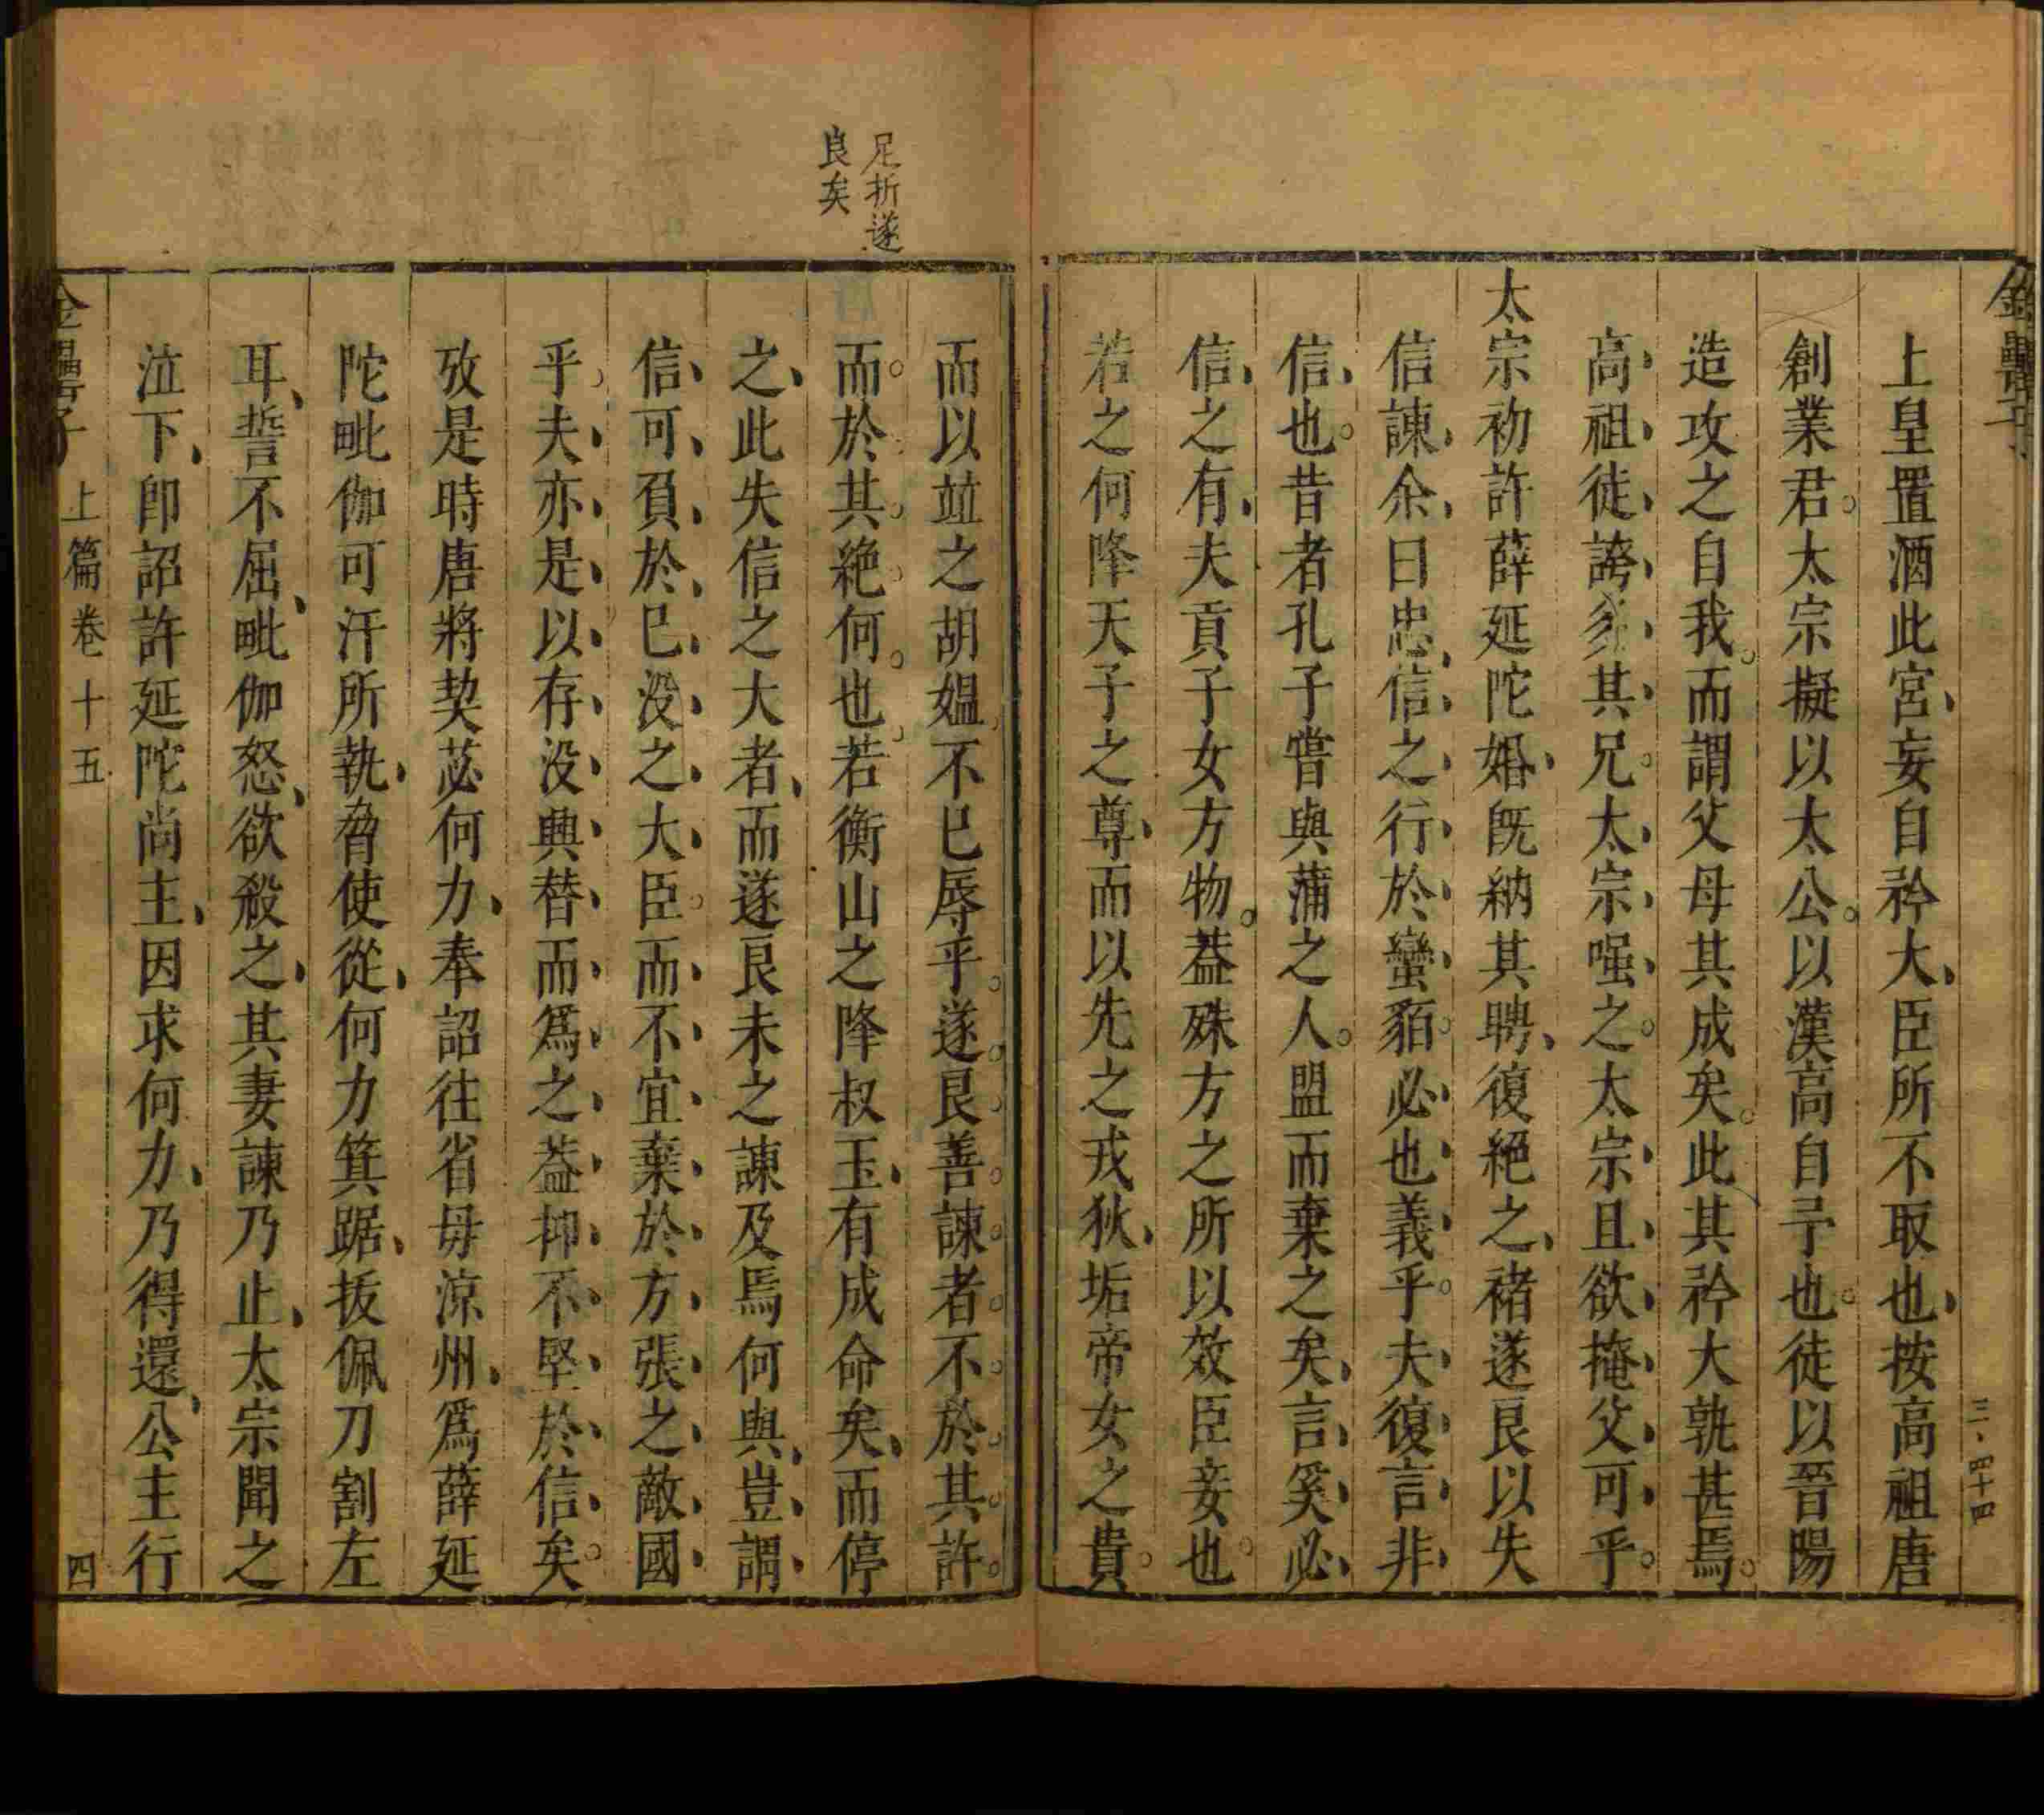 上皇置酒此宮妄自矜大臣所不取也按高祖唐
創業君太宗擬以太公以漢高自予也徒以晉陽
造攻之自我而謂父母其成矣此其矜大孰甚焉
高祖徒誇多其兄太宗嗤之太宗且欲掩父可乎
太宗初許薛延陀婚既納其聘復絕之褚遂良以失
信諫余曰忠信之行於蠻貊必也義乎夫復言非
信也昔者孔子嘗與蒲之人盟而棄之矣言奚必
信之有夫貢子女方物葢殊方之所以效臣妾也
若之何降天子之尊而以先之戎狄垢帝女之貴
足折遂
良矣
而以竝之胡媼不已辱乎遂良善諫者不於其許
而於其絕何也若衡山之降叔玉有成命矣而停
之此失信之大者而遂良未之諫及焉何與豈謂
信可負於已没之大臣而不宜棄於方張之敵國
乎夫亦是以存没興替而爲之葢抑不堅於信矣
攷是時唐將契苾何力奉詔往省毋涼州爲薛延
陀毗伽可汗所執脅使從何力箕踞拔佩刀割左
耳誓不屈毗伽怒欲殺之其妻諫乃止太宗聞之
泣下卽詔許延陀尚主因求何力乃得還公主行
金罍子 上篇卷十五 四